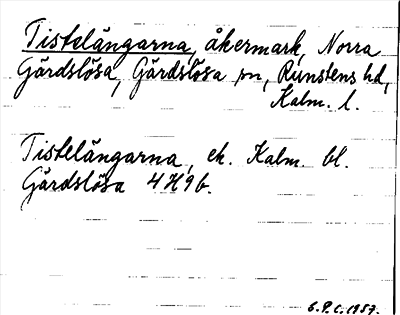 Tistelängarna, åkermark, Norra
Gärdslösa, Gärdslösa sn, Runstens hd,
Kalm. l.
Tistelängarna, ek. Kalm. bl.
Gärdslösa 4H9b.
G.P.C. 1957.